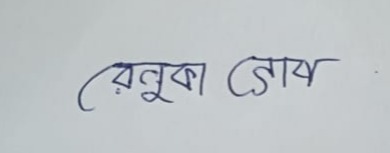 রেনুকা ঘোষ